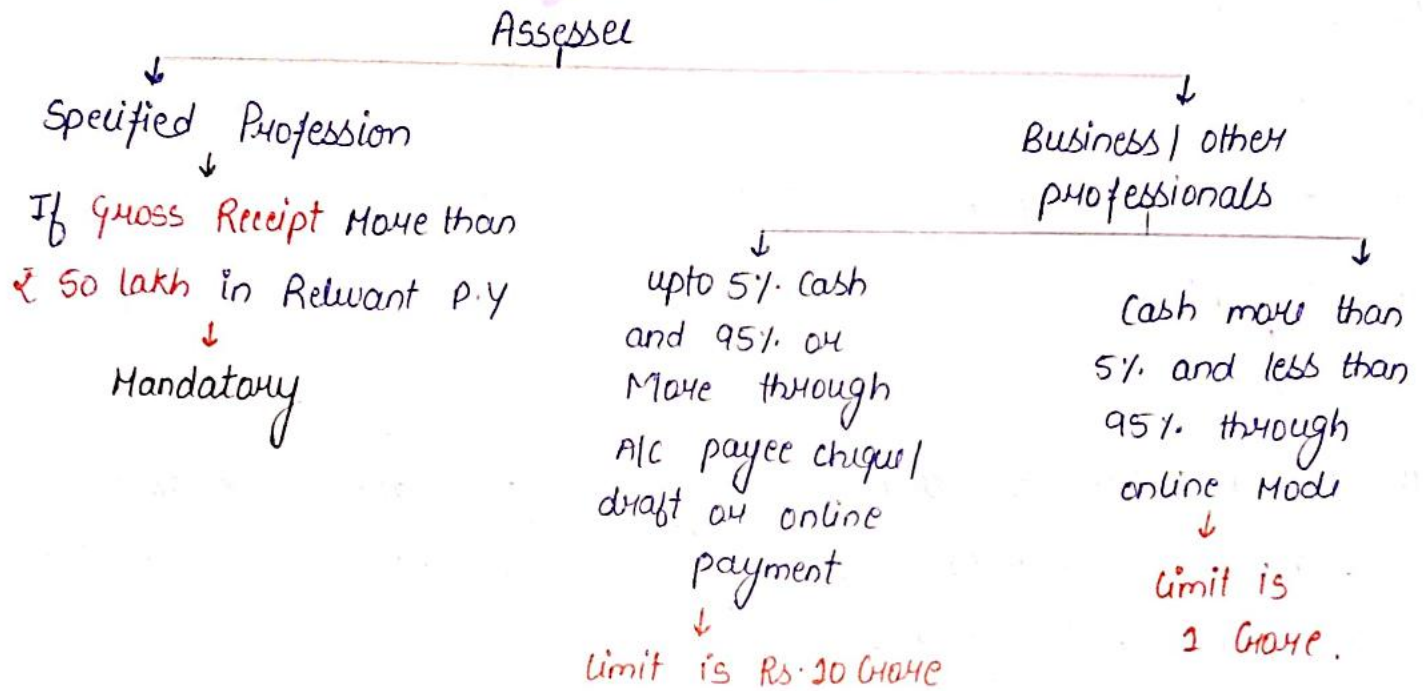 Assessee
Specified Profession
If Gross Receipt More than
₹ 50 lakh in Relevant P.Y
Mandatory
Business / other
professionals
upto 5%. Cash
and 95%. or
More through
A/C payee cheque/
draft or online
payment
limit is Rs. 10 Crore
Cash more than
5%. and less than
95%. through
online Mode
limit is
1 Crore.